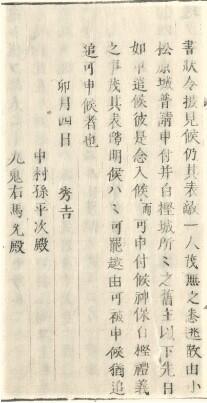 書状令披見候仍其表敵一人茂無之悉逃散由小
松原城普請申付并白樫城所々之舊主以下先日
如申遣候彼是念入候而可申付候神保白樫禮義
之事茂其表隙明候ハヽ可罷越由可被申候猶追
追可申候者也
卯月四日　秀吉
中村孫平次殿
九鬼右馬允殿